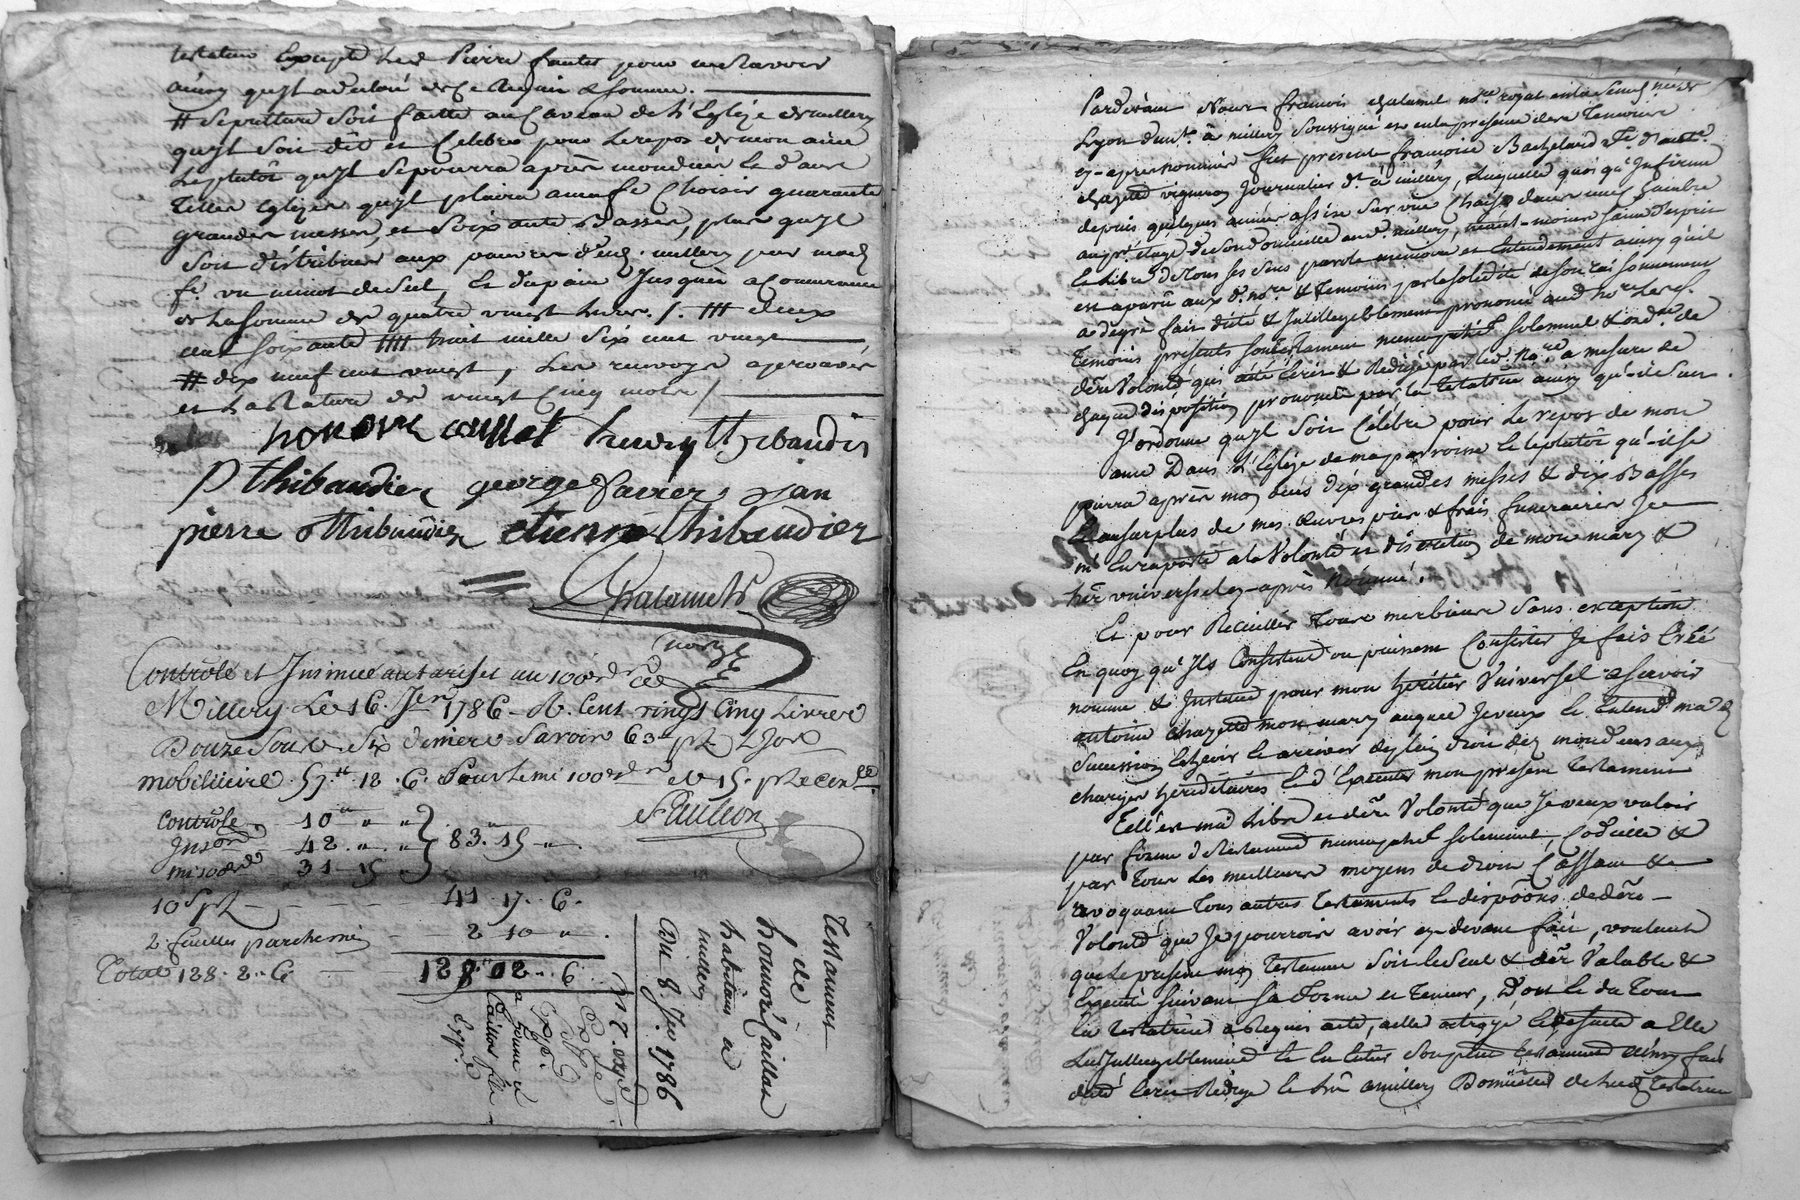 testateur Excepté led Pierre fautes pour ne Savoir
ainsy qu'jl a declaré de ce requis & sommé.
# Sepulture soit faitte au Caveau de L'Eglize de millery
qu'jl soit dit et Celebré pour Le repos de mon ame
Le plutôt qu'jl se pourra après mon decès Et dans
Telles eglizes qu'jl plaira a ma fe Choisir quarante
grandes messes, et soixante Basses, plus qu'jl
soit distribué aux pauvres dud. millery par mad.
fe. un minot de sel, Et du pain Jusques a Concurrence
de La somme de quatre vingt livres ./. ## deux
cent soixante #### huit mille six cent vingt
# dix neuf cent vingt, Les renvoys aprouvés
et La Rature de vingt Cinq mots /
honoré caillot henry thibaudier
P thibaudier george favier jean
pierre thibaudier etienne thibaudier
Chalamel
Nore
Controlé et Insinué au tarif et au 100e d. a
Millery Le 16. Jer 1786 - R. Cent vingt Cinq Livres
Douze Sous Six deniers Savoir 63
mobiliaire 57 tt 18. 6. Pour Le mi 100e d. et 15.
Contrôle - 10 tt " "
Inson - 42 " " 83. 15 "
mi 100e d. 31 15
10 s. pr tt - - - 41 17. 6.
2 feuilles parchemin - 2 10 "
Total 128. 2. 6. 128 02. 6
Testament
de
honnoré Caillot
habitant a
millery
Du 8. Jer 1786
n° 7. expé
Pardevant Nous francois chalamel nore. royal en la Senechée de
Lyon demt. a millery soussigné et en la presence des Temoins
cy-apres nommés fut presente francoise Bachelard fe. d'anto.
chazette vigneron Journalier dt. a millery, Laquelle quoi qu'Infirme
depuis quelques années assise sur une chaise dans une chambre
au pr. étage de son domicille aud. millery, néant-moins saine d'esprit
Et libre de tous ses sens parole memoire et Entendement ainsy qu'il
est aparu aux d. nre & temoins par la solidité de son raisonnement
a degré fait dicté & Intelligiblement prononcé aud nore. Les
temoins présents son testament nuncupatif solemnel & ordre. de
dere Volonté qui a été Ecrit & Redigé par led. Nore a mesure de
chaque disposition prononcée par la testatrice ainsy qu'il s'en suit.
J'ordonne qu'jl soit Célébré pour Le repos de mon
ame Dans L'Eglize de ma parroisse Le plutôt qu'il se
pourra après mon decès dix grandes messes & dix Basses
Et au surplus de mes œuvres pies & frais funeraires Je
m'En raporte a la Volonté et discretion de mon mary &
her. universel cy-après Nommé.
Et pour Recueillir Tous mes biens Sans exception
En quoy qu'Ils Consistent ou puissent Consister Je fais Créé
nomme & Institue pour mon heritier Universel asavoir
antoine chazette mon mary auquel Je veux Et Entend ma
Succession Echeoir Et arriver de plein droit dez mon deces aux
charges héréditaires Et d'Executer mon present testament
Tell'est ma libre et dere Volonté que Je veux valoir
par forme de testament nuncupatif solemnel, Codicille &
par Tous Les meilleurs moyens de droit Cassant &
revoquant Tous autres testaments Et dispoons de dere
Volonté que Je pourrois avoir cy-devant fait, voulant
que Le present mon testament soit le seul & der Valable &
Executé suivant sa forme et teneur, Dont Et du tout
La testatrice a Requis acte, a elle octroyé Et de suitte a Elle
Lu Intelligiblement Et En Entier son present testament ainsy fait
dicté Ecrit Redigé Et Lu a millery Domicile de lad. testatrice